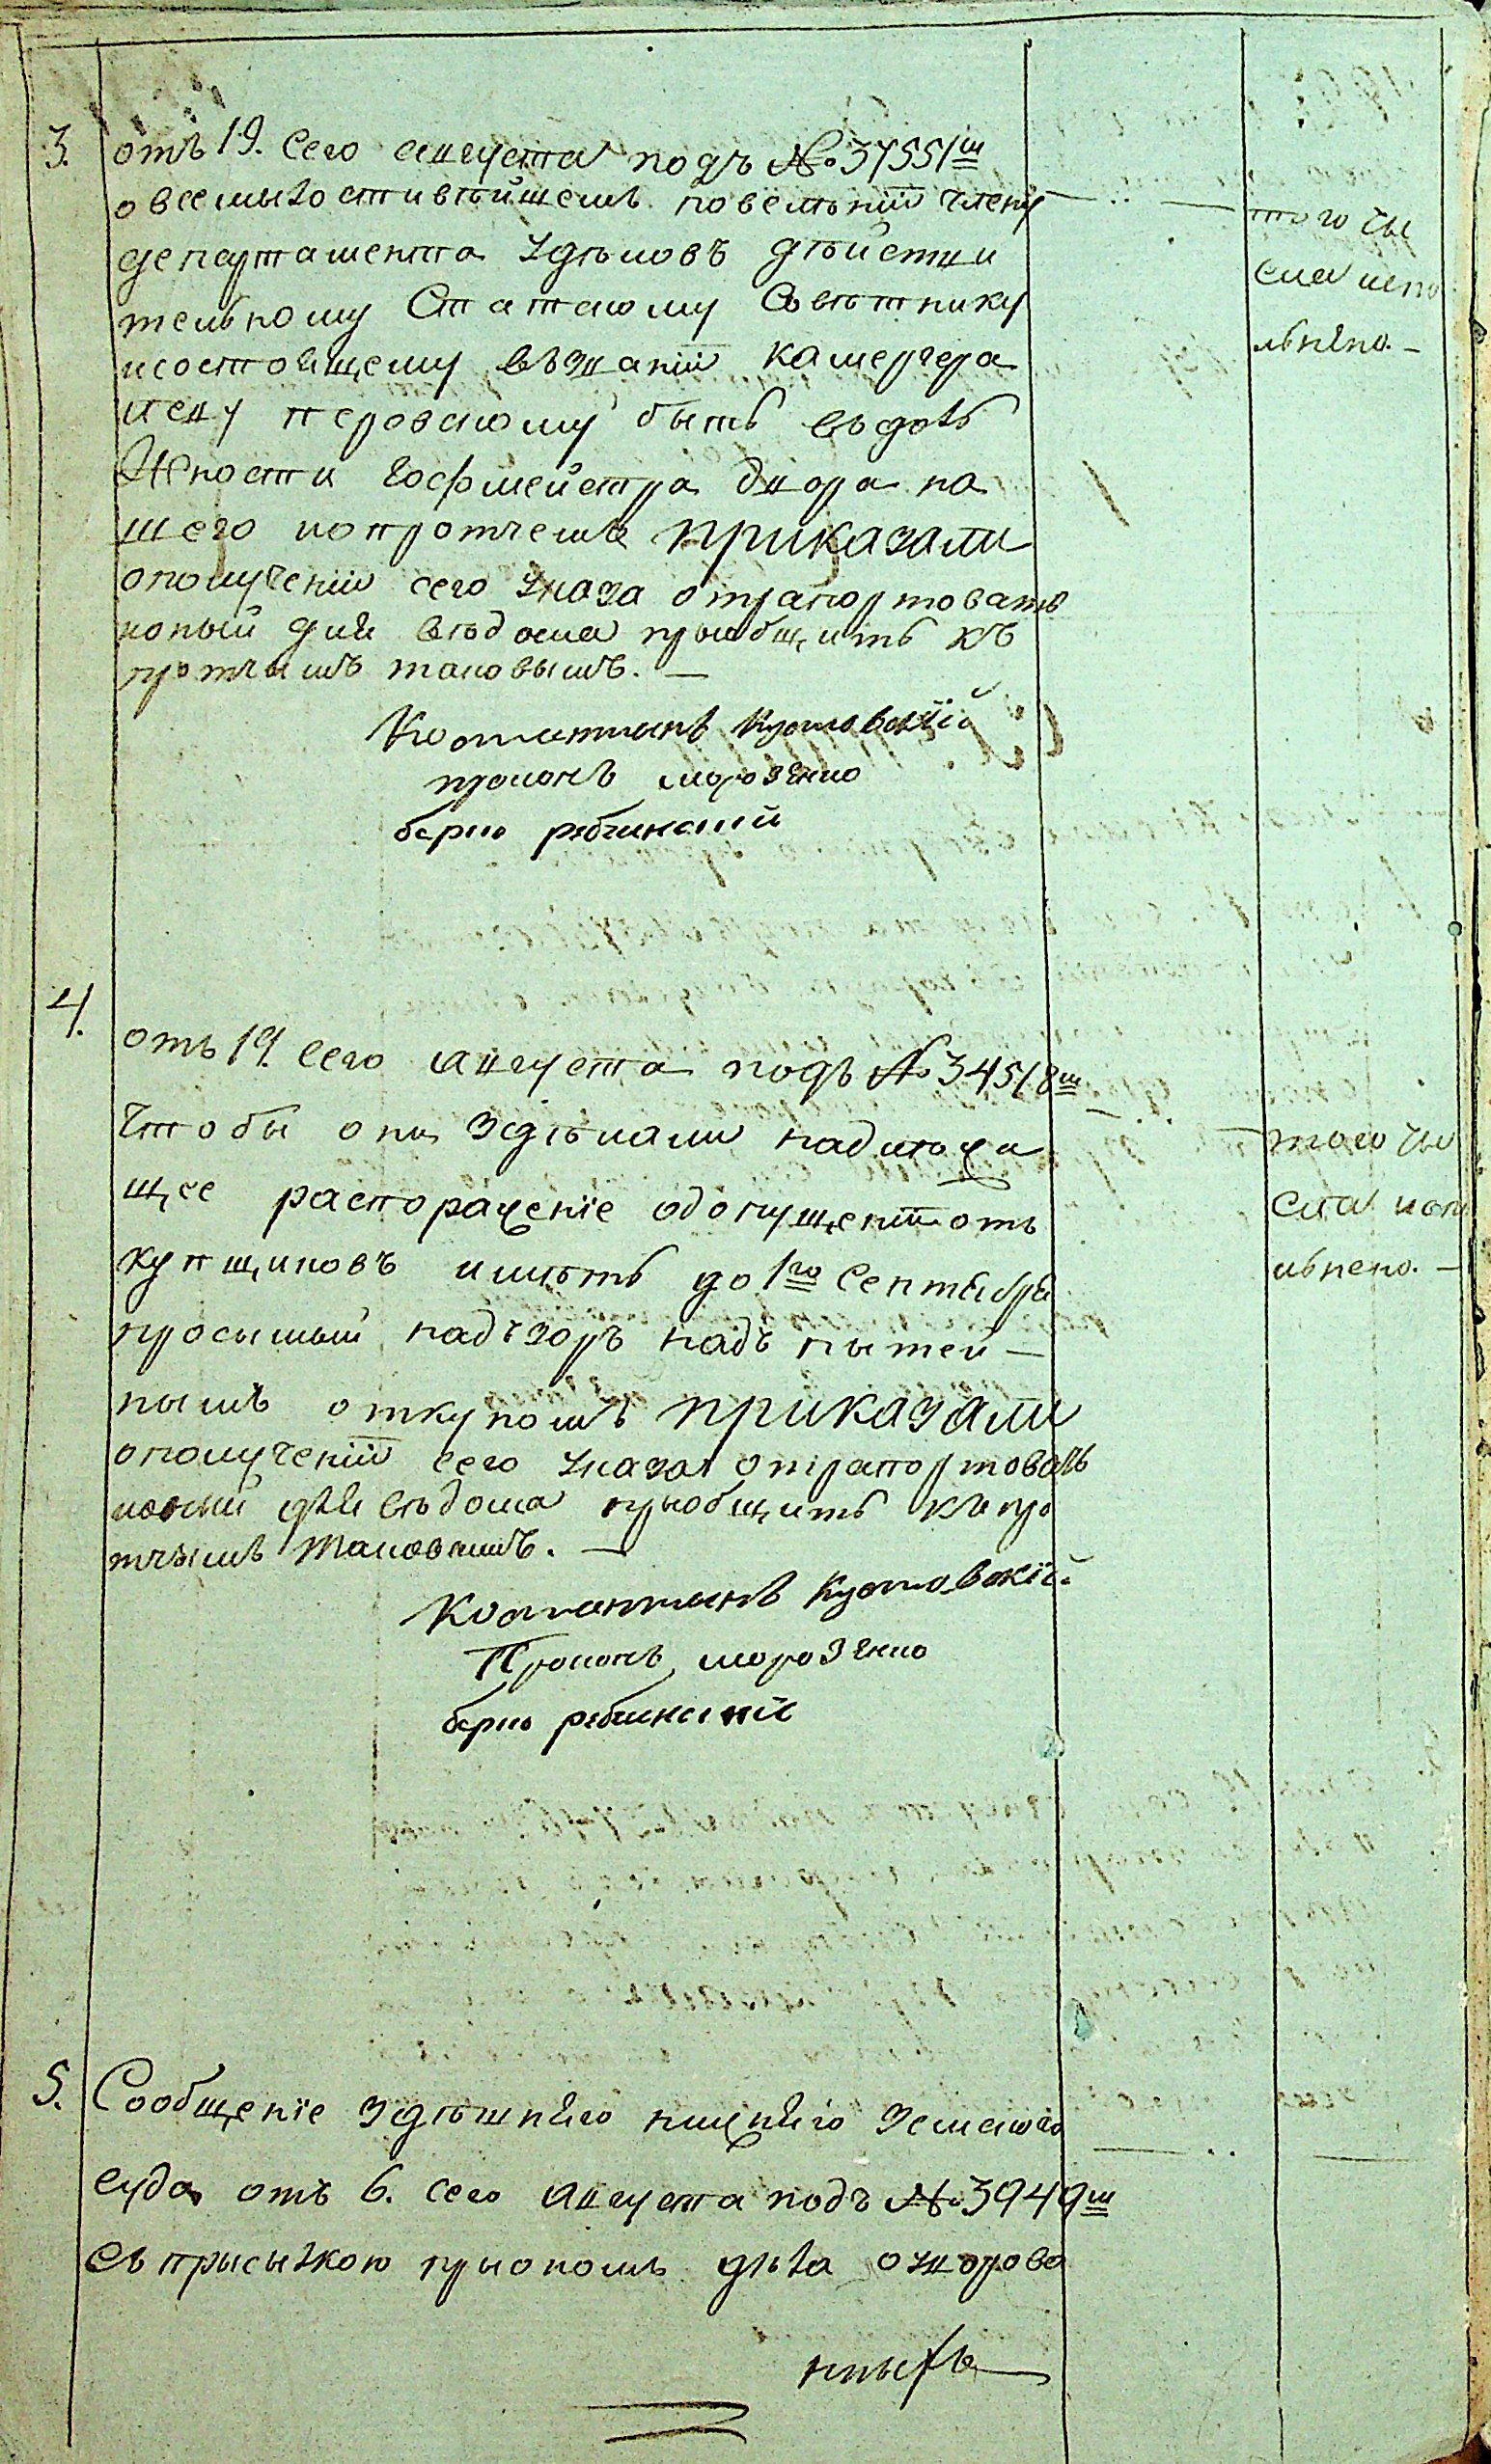 3. отъ 19. Сего августа подъ № 37551м
о всемылостивѣйшемъ повелѣніи члену
департамента Удѣловъ дѣйстви
тельному Статскому Совѣтнику
исостоящему възваніи камергера
Льву перовскому быть въдолъ
жности Гофмейстра двора на
шего ипротчемъ приказали
ополученіи сего Указа отрапортовать
копый для вѣдома прыобщить къ
протчымъ таковымъ. —
Костантынъ Кустовскій
прокопъ морозенко
барко ребинский
того чы
сла испо
льняно. —
4. отъ 19. сего августа подъ № 34518м
Чтобы онъ зделалъ надлежа
щее распоражение одопущеніи отъ
купщиковъ имѣть до 1го Сентября
просымый надъзоръ надъ пытей —
нымъ откупомъ приказали
ополученіи сего указа отрапортовать
копый для вѣдома прыобщить къ про
тчымъ таковымъ. —
Костантынъ Кустовскій
Прокопъ морозенко
барко ребинский
того чы
сла испо
льнено. —
5. Сообщеніе здѣшняго нижняго земского
суда отъ 6. Сего августа подъ № 3949м
съ прысылкою прыономъ дѣла одворова
ныхъ